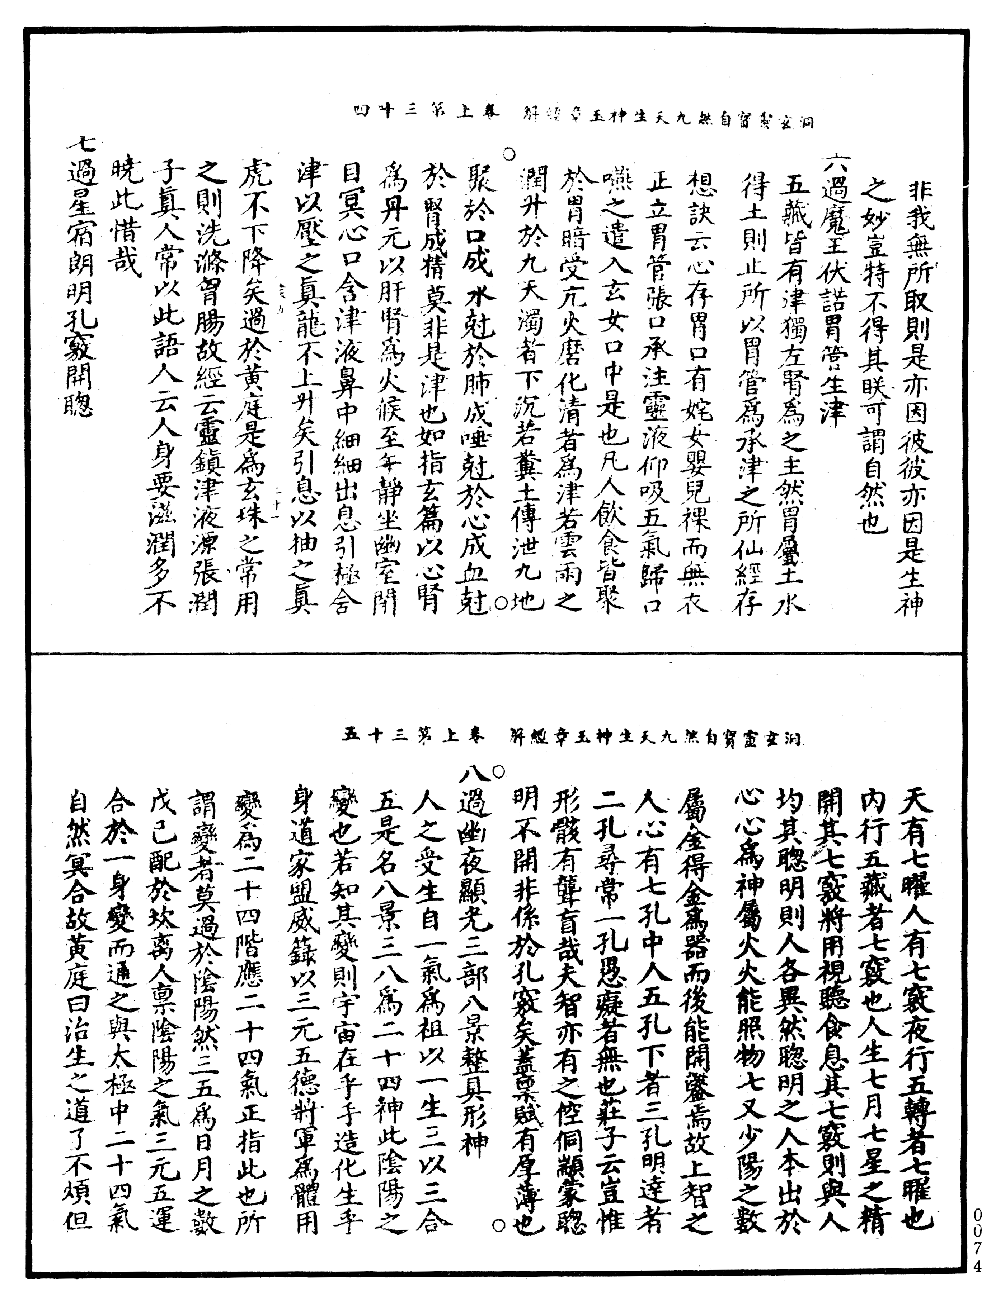 洞玄靈寶自然九天生神玉章經解　卷上第三十四
非我無所取則是亦因彼彼亦因是生神
之妙豈特不得其眹可謂自然也
六過魔王伏諾胃管生津
五藏皆有津獨左腎為之主然胃屬土水
得土則止所以胃管為承津之所仙經存
想訣云心存胃口有姹女嬰兒裸而無衣
正立胃管張口承注靈液仰吸五氣歸口
嚥之遣入玄女口中是也凡人飲食皆聚
於胃暗受亢火磨化清者為津若雲雨之
潤升於九天濁者下沉若糞土傳泄九地
聚於口成水尅於肺成唾尅於心成血尅
於腎成精莫非是津也如指玄篇以心腎
為丹元以肝腎為火候至每靜坐幽室閉
目冥心口含津液鼻中細細出息引極含
津以壓之真龍不上升矣引息以抽之真
虎不下降矣過於黃庭是為玄珠之常用
之則洗滌胷腸故經云靈鎮津液源張潤
子真人常以此語人云人身要滋潤多不
曉此惜哉
七過星宿朗明孔竅開聰
洞玄靈寶自然九天生神玉章經解　卷上第三十五
天有七曜人有七竅夜行五轉者七曜也
內行五藏者七竅也人生七月七星之精
開其七竅將用視聽食息其七竅則與人
均其聰明則人各異然聰明之人本出於
心心為神屬火火能照物七又少陽之數
屬金得金為器而後能開鑿焉故上智之
人心有七孔中人五孔下者三孔明達者
二孔尋常一孔愚癡者無也莊子云豈惟
形骸有聾盲哉夫智亦有之倥侗顓蒙聰
明不開非係於孔竅矣蓋稟賦有厚薄也
八過幽夜顯光三部八景整具形神
人之受生自一氣為祖以一生三以三合
五是名八景三八為二十四神此陰陽之
變也若知其變則宇宙在乎手造化生乎
身道家盟威籙以三元五德將軍為體用
變為二十四階應二十四氣正指此也所
謂變者莫過於陰陽然三五為日月之數
戊己配於坎离人禀陰陽之氣三元五運
合於一身變而通之與太極中二十四氣
自然冥合故黃庭曰治生之道了不煩但
0074